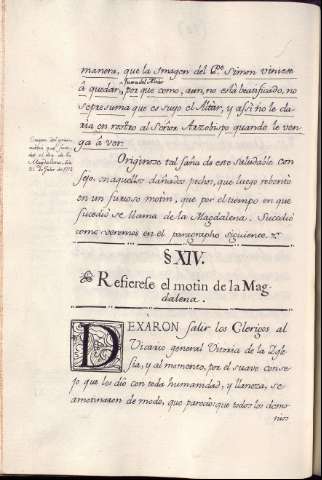 manera, que la Imagen del Pe. Simon viniese
fuera del Altar
â quedar, por que como, aun, no està beatificado, no
se presuma que es suyo el Altar; y assi no le da-
ria en rostro al Señor Arzobispo quando le ven-
ga à ver.
Origen del gran
motin que suce-
diò el dia de la
Magdalena, dia
22 de Julio de 1612
Originose tal saña de este saludable con-
sejo, en aquellos dañados pechos, que luego rebentò
en un furioso motin, que por el tiempo en que
sucediò se llama de la Magdalena. Sucediò
como veremos en el paragrapho siguiente.
§ XIV.
Refierese el motin de la Mag-
dalena.
DEXARON salir los Clerigos al
Vicario general Vitoria de la Igle-
sia, y al momento, por el suave conse-
jo que les diò con toda humanidad, y llaneza, se
amotinaron de modo, que pareciò que todos los demo-
nios